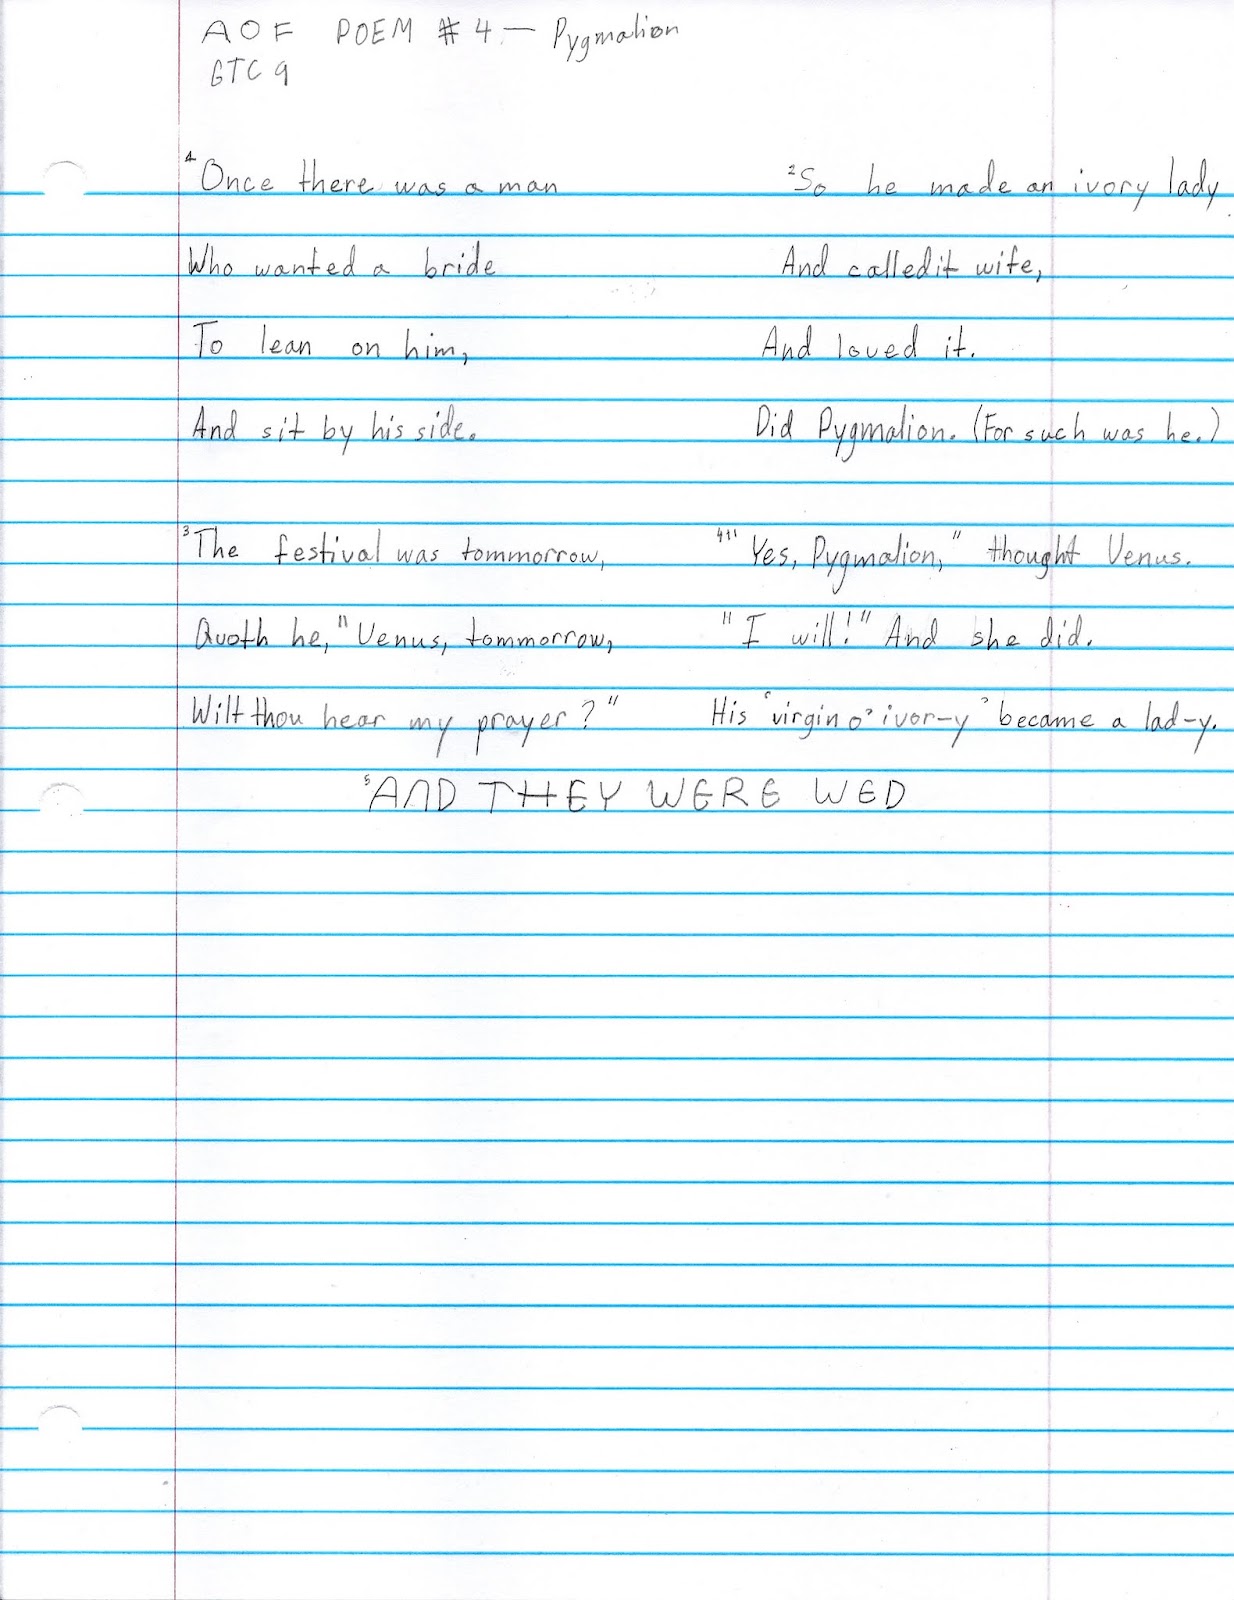 AOF POEM #4 — Pygmalion
GTC 9
1 Once there was a man
Who wanted a bride
To lean on him,
And sit by his side.
2 So he made an ivory lady
And called it wife,
And loved it.
Did Pygmalion. (For such was he.)
3 The festival was tommorrow,
Quoth he, "Venus, tommorrow,
Wilt thou hear my prayer?"
4 "Yes, Pygmalion," thought Venus.
"I will!" And she did.
His 'virgin o' ivor-y' became a lad-y.
5 AND THEY WERE WED